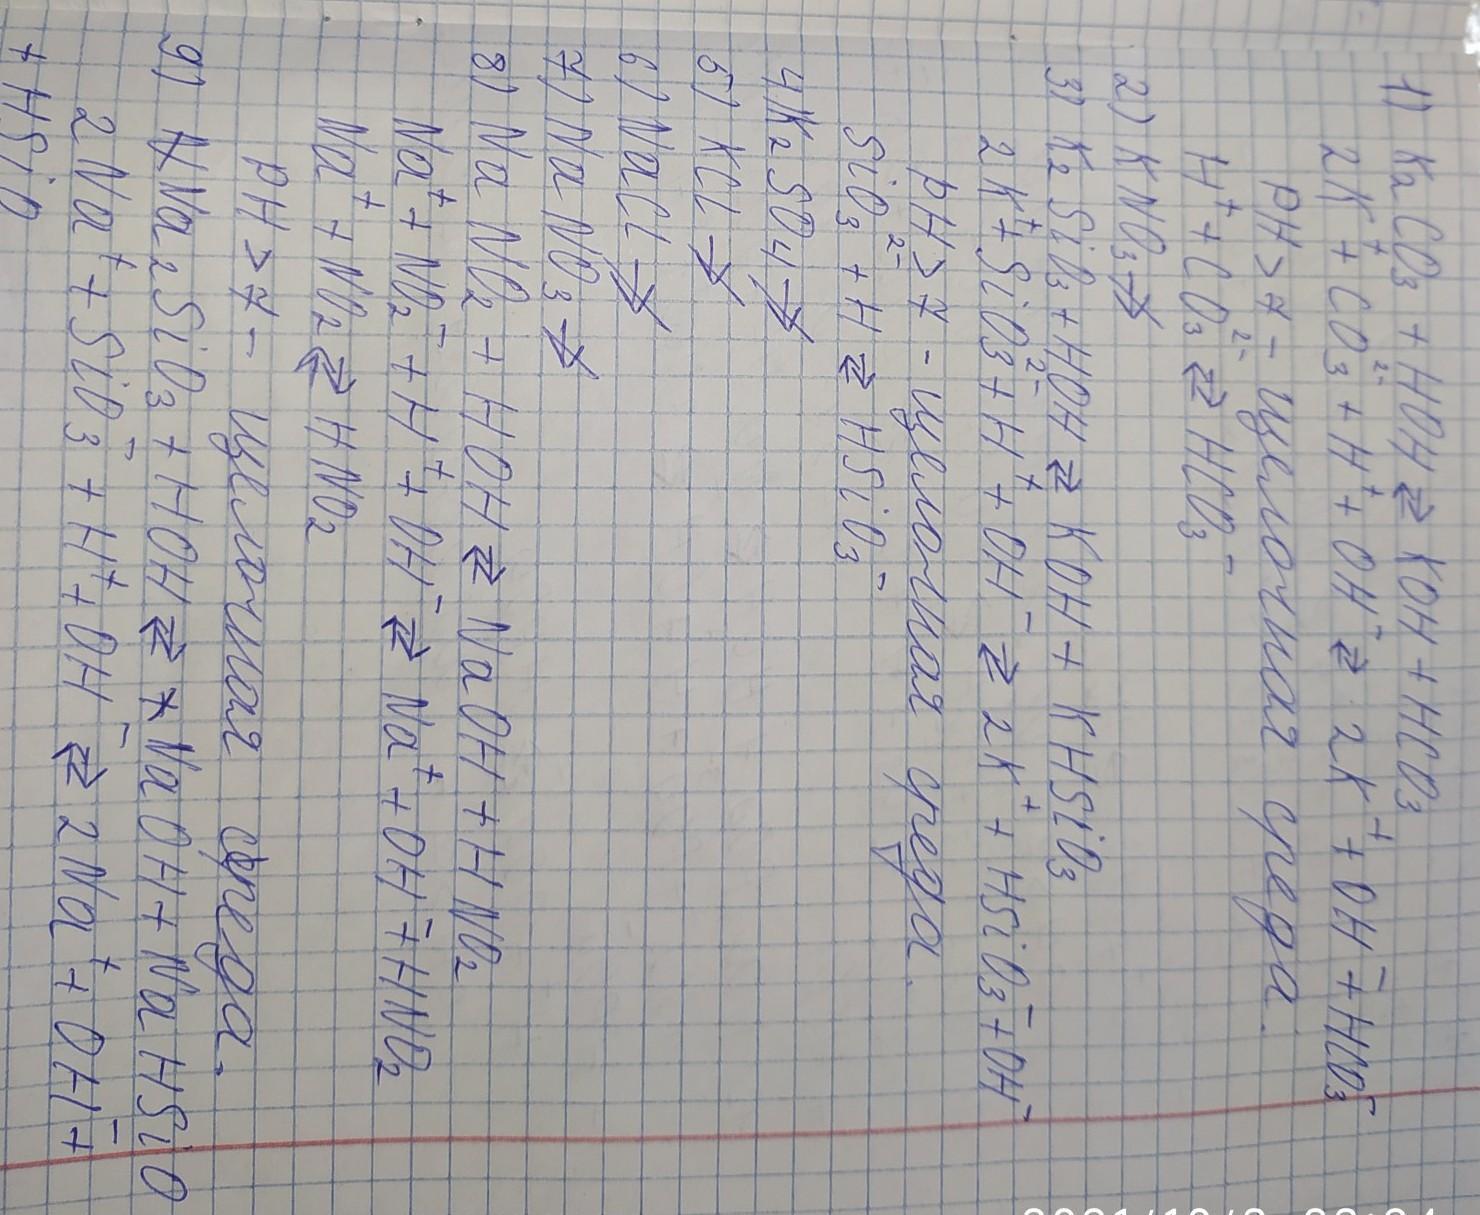 1) K₂CO₃ + HOH ⇄ KOH + HCO₃
2K⁺ + CO₃²⁻ + H⁺ + OH⁻ ⇄ 2K⁺ + OH⁻ + HCO₃⁻
PH > 7 - щелочная среда.
H⁺ + CO₃²⁻ ⇄ HCO₃⁻
2) KNO₃ ↛
3) K₂SiO₃ + HOH ⇄ KOH + KHSiO₃
2K⁺ + SiO₃²⁻ + H⁺ + OH⁻ ⇄ 2K⁺ + HSiO₃⁻ + OH⁻
PH > 7 - щелочная среда.
SiO₃²⁻ + H ⇄ HSiO₃⁻
4) K₂SO₄ ↛
5) KCl ↛
6) NaCl ↛
7) NaNO₃ ↛
8) NaNO₂ + HOH ⇄ NaOH + HNO₂
Na⁺ + NO₂⁻ + H⁺ + OH⁻ ⇄ Na⁺ + OH⁻ + HNO₂
Na⁺ + NO₂ ⇄ HNO₂
PH > 7 - щелочная среда.
9) Na₂SiO₃ + HOH ⇄ NaOH + NaHSiO
2Na⁺ + SiO₃⁻ + H⁺ + OH⁻ ⇄ 2Na⁺ + OH⁻ +
+ HSiO